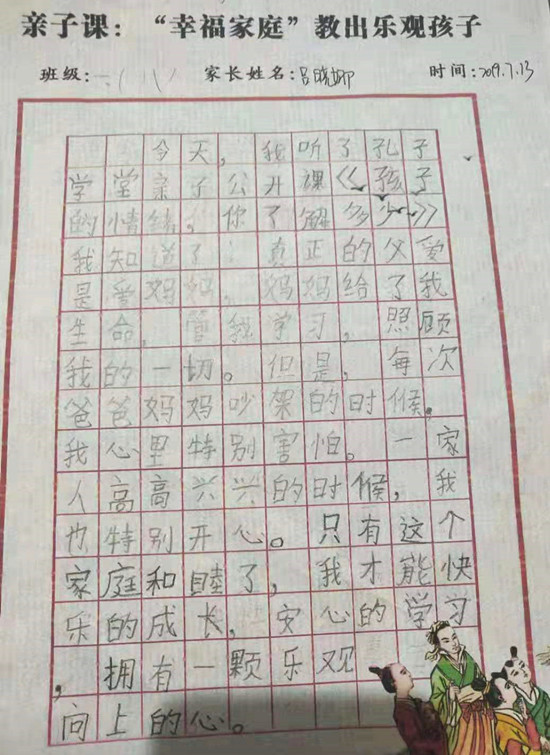 亲子课：“幸福家庭”教出乐观孩子
班级：一（1） 家长姓名：吕晓娜 时间：2019.7.13
今天，我听了孔子
学堂亲子公开课《孩子
的情绪，你了解多少》
我知道了：真正的父爱
是爱妈妈，妈妈给了我
生命，管我学习，照顾
我的一切。但是，每次
爸爸妈妈吵架的时候，
我心里特别害怕。一家
人高高兴兴的时候，我
也特别开心。只有这个
家庭和睦了，我才能快
乐的成长，安心的学习
，拥有一颗乐观
向上的心。